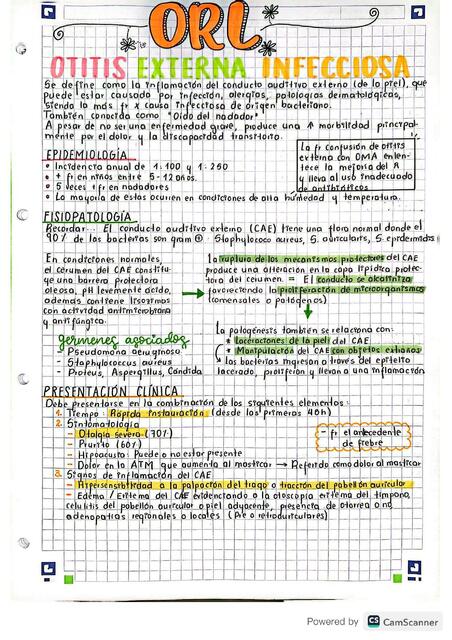 ORL
OTITIS EXTERNA INFECCIOSA
Se define como la inflamación del conducto auditivo externo (de la piel), que
puede estar causado por infección, alergias, patologías dermatológicas,
siendo la más fr x causa infecciosa de origen bacteriano.
También conocida como "Oído del nadador"
A pesar de no ser una enfermedad grave, produce una ↑ morbilidad principal-
mente por el dolor y la discapacidad transitoria.
La fr confusión de otitis
externa con OMA enlen-
tece la mejoría del
y lleva al uso inadecuado
de antibióticos
EPIDEMIOLOGÍA
• Incidencia anual de 1:100 y 1:250
• + fr en niños entre 5-12 años.
• 5 veces + fr en nadadores
• La mayoría de estas ocurren en condiciones de alta humedad y temperatura.
FISIOPATOLOGÍA
Recordar... El conducto auditivo externo (CAE) tiene una flora normal donde el
90% de las bacterias son gram ⊕: Staphylococo aureus, S. auricularis, S. epidermidis
En condiciones normales,
el cerumen del CAE constitu-
ye una barrera protectora
oleosa, pH levemente ácido,
además contiene lisozimas
con actividad antimicrobiana
y antifúngica.
la ruptura de los mecanismos protectores del CAE
produce una alteración en la capa lipídica protec-
tora del cerumen = El conducto se alcaliniza
favoreciendo la proliferación de microorganismos
(comensales o patógenos)
gérmenes asociados
- Pseudomona aeruginosa
- Staphylococcus aureus
- Proteus, Aspergillus, Candida
la patogénesis también se relaciona con:
* laceraciones de la piel del CAE
* Manipulación del CAE con objetos extraños
las bacterias ingresan a través del epitelio
lacerado, proliferan y llevan a una inflamación
PRESENTACIÓN CLÍNICA
Debe presentarse en la combinación de los siguientes elementos:
1. Tiempo: Rápida instauración (desde los primeras 48h)
2. Sintomatología
- Otalgia severa (70%)
- Prurito (60%)
- Hipoacusia: Puede o no estar presente
- Dolor en la ATM que aumenta al masticar → Referido como dolor al masticar
- fr el antecedente
de fiebre
3. Signos de inflamación del CAE
- Hipersensibilidad a la palpación del trago o tracción del pabellón auricular
- Edema / Eritema del CAE evidenciando a la otoscopia eritema del tímpano,
celulitis del pabellón auricular o piel adyacente, presencia de otorrea o no,
adenopatías regionales o locales (Pre o retroauriculares)
Powered by CS CamScanner